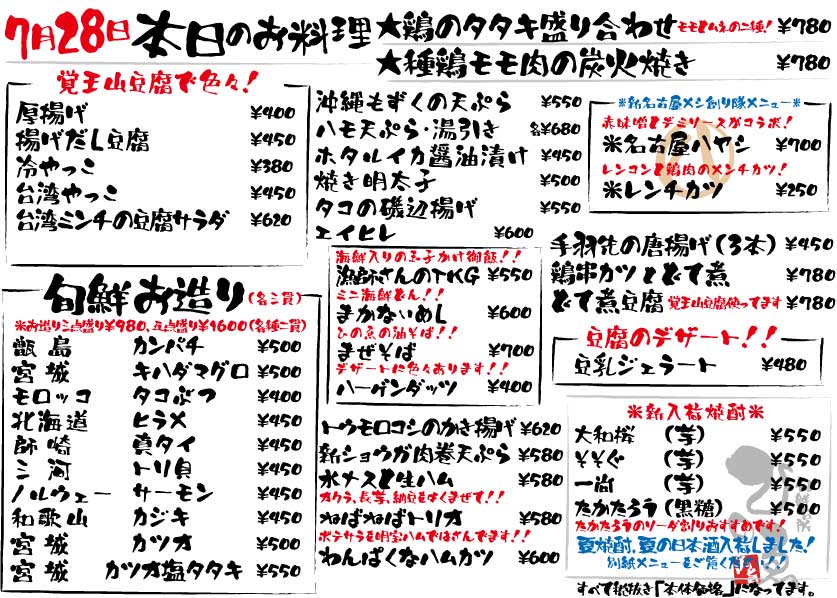 7月28日 本日のお料理
★鶏のタタキ盛り合わせ モモとムネの二種! ¥780
★種鶏モモ肉の炭火焼き ¥780
覚王山豆腐で色々!
厚揚げ ¥400
揚げだし豆腐 ¥450
冷やっこ ¥380
台湾やっこ ¥450
台湾ミンチの豆腐サラダ ¥620
旬鮮お造り(各三貫)
※お造り三点盛り¥980、五点盛り¥1600(各種二貫)
甑島 カンパチ ¥500
宮城 キハダマグロ ¥500
モロッコ タコぶつ ¥400
北海道 ヒラメ ¥450
師崎 真タイ ¥450
三河 トリ貝 ¥450
ノルウェー サーモン ¥450
和歌山 カジキ ¥450
宮城 カツオ ¥500
宮城 カツオ塩タタキ ¥550
沖縄もずくの天ぷら ¥550
ハモ天ぷら・湯引き 各¥680
ホタルイカ醤油漬け ¥450
焼き明太子 ¥500
タコの磯辺揚げ ¥550
エイヒレ ¥600
海鮮入りの玉子かけ御飯!!
漁師さんのTKG ¥550
ミニ海鮮どん!!
まかないめし ¥600
ひの魚の油そば!!
まぜそば ¥700
デザートに色々あります!!
ハーゲンダッツ ¥400
トウモロコシのかき揚げ ¥620
新ショウガ肉巻天ぷら ¥580
水ナスと生ハム ¥580
オクラ、長芋、納豆をよくまぜて!!
ねばねばトリオ ¥580
ポテサラを明宝ハムではさんでます!!
わんぱくなハムカツ ¥600
※新名古屋メシ創り隊メニュー※
赤味噌とデミソースがコラボ!
※名古屋ハヤシ ¥700
レンコンと鶏肉のメンチカツ!
※レンチカツ ¥250
手羽先の唐揚げ(3本) ¥450
鶏串カツとどて煮 ¥780
どて煮豆腐 覚王山豆腐使ってます ¥780
豆腐のデザート!!
豆乳ジェラート ¥480
※新入荷焼酎※
大和桜 (芋) ¥550
そそぐ (芋) ¥550
一尚 (芋) ¥550
たかたろう(黒糖) ¥500
たかたろうのソーダ割りおすすめです!
夏焼酎、夏の日本酒入荷しました!
別紙メニューをご覧ください!!
すべて税抜き「本体価格」になってます。